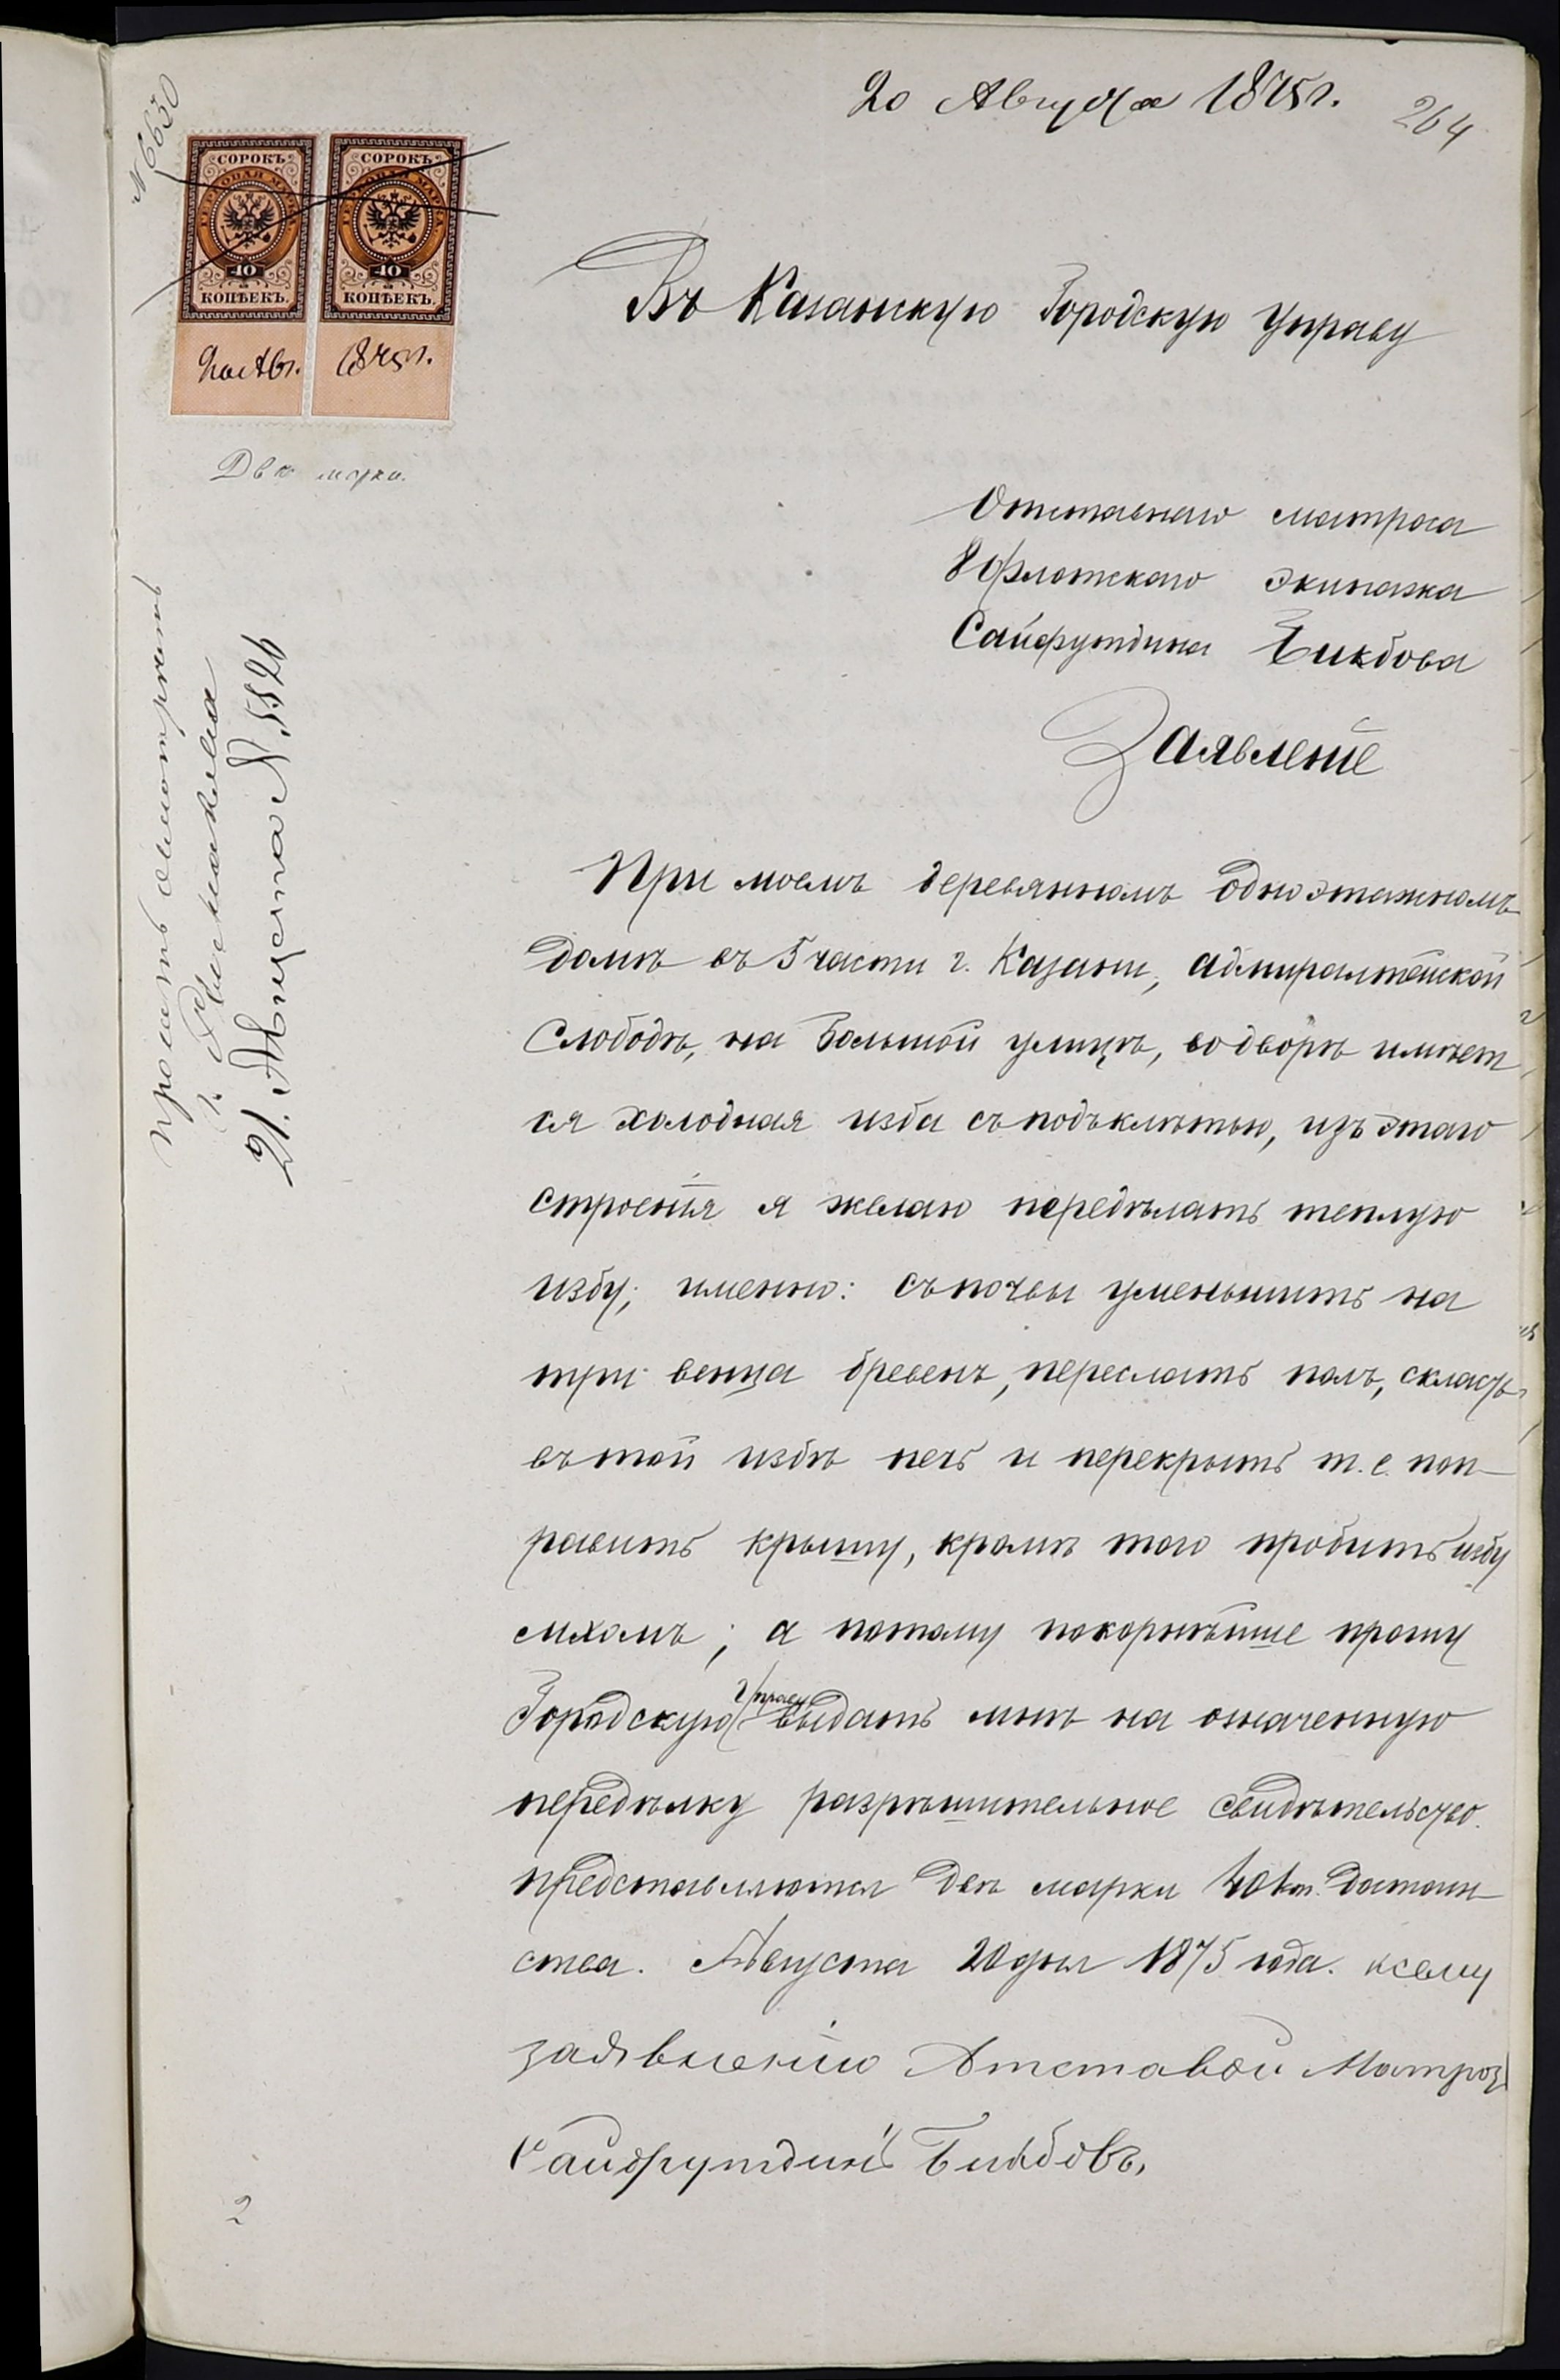 20 Августа 1875 г.
264
№ 6630
СОРОКЪ
ГЕРБОВАЯ МАРКА
40
КОПѢЕКЪ.
СОРОКЪ
ГЕРБОВАЯ МАРКА
40
КОПѢЕКЪ.
20 Авг. 1875 г.
Двѣ марки.
Въ Казанскую Городскую Управу
Отставнаго матроса
8 флотскаго экипажа
Сайфутдина Бикбова
Заявленіе
При моемъ деревянномъ одноэтажномъ
домѣ въ 5 части г. Казани, адмиралтейской
Слободѣ, на Большой улицѣ, во дворѣ имѣет
ся холодная изба съ подъклѣтью, изъ этаго
строенія я желаю передѣлать теплую
избу; именно: съ почвы уменьшить на
три венца бревенъ, переслать полъ, скласть
въ той избѣ печь и перекрыть т.е. поп-
равить крышу, кромѣ того пробить избу
мхомъ; а потому покорнѣйше прошу
Городскую Управу выдать мнѣ на означенную
передѣлку разрѣшительное свидѣтельство.
представляются двѣ марки 40 коп. достоин-
ства. Августа 20 дня 1875 года. ксему
заявленію Атставой Матроз
Сайфутдинъ Бикбовъ,
просить осмотрѣть
г.
21. Августа № 5526
2